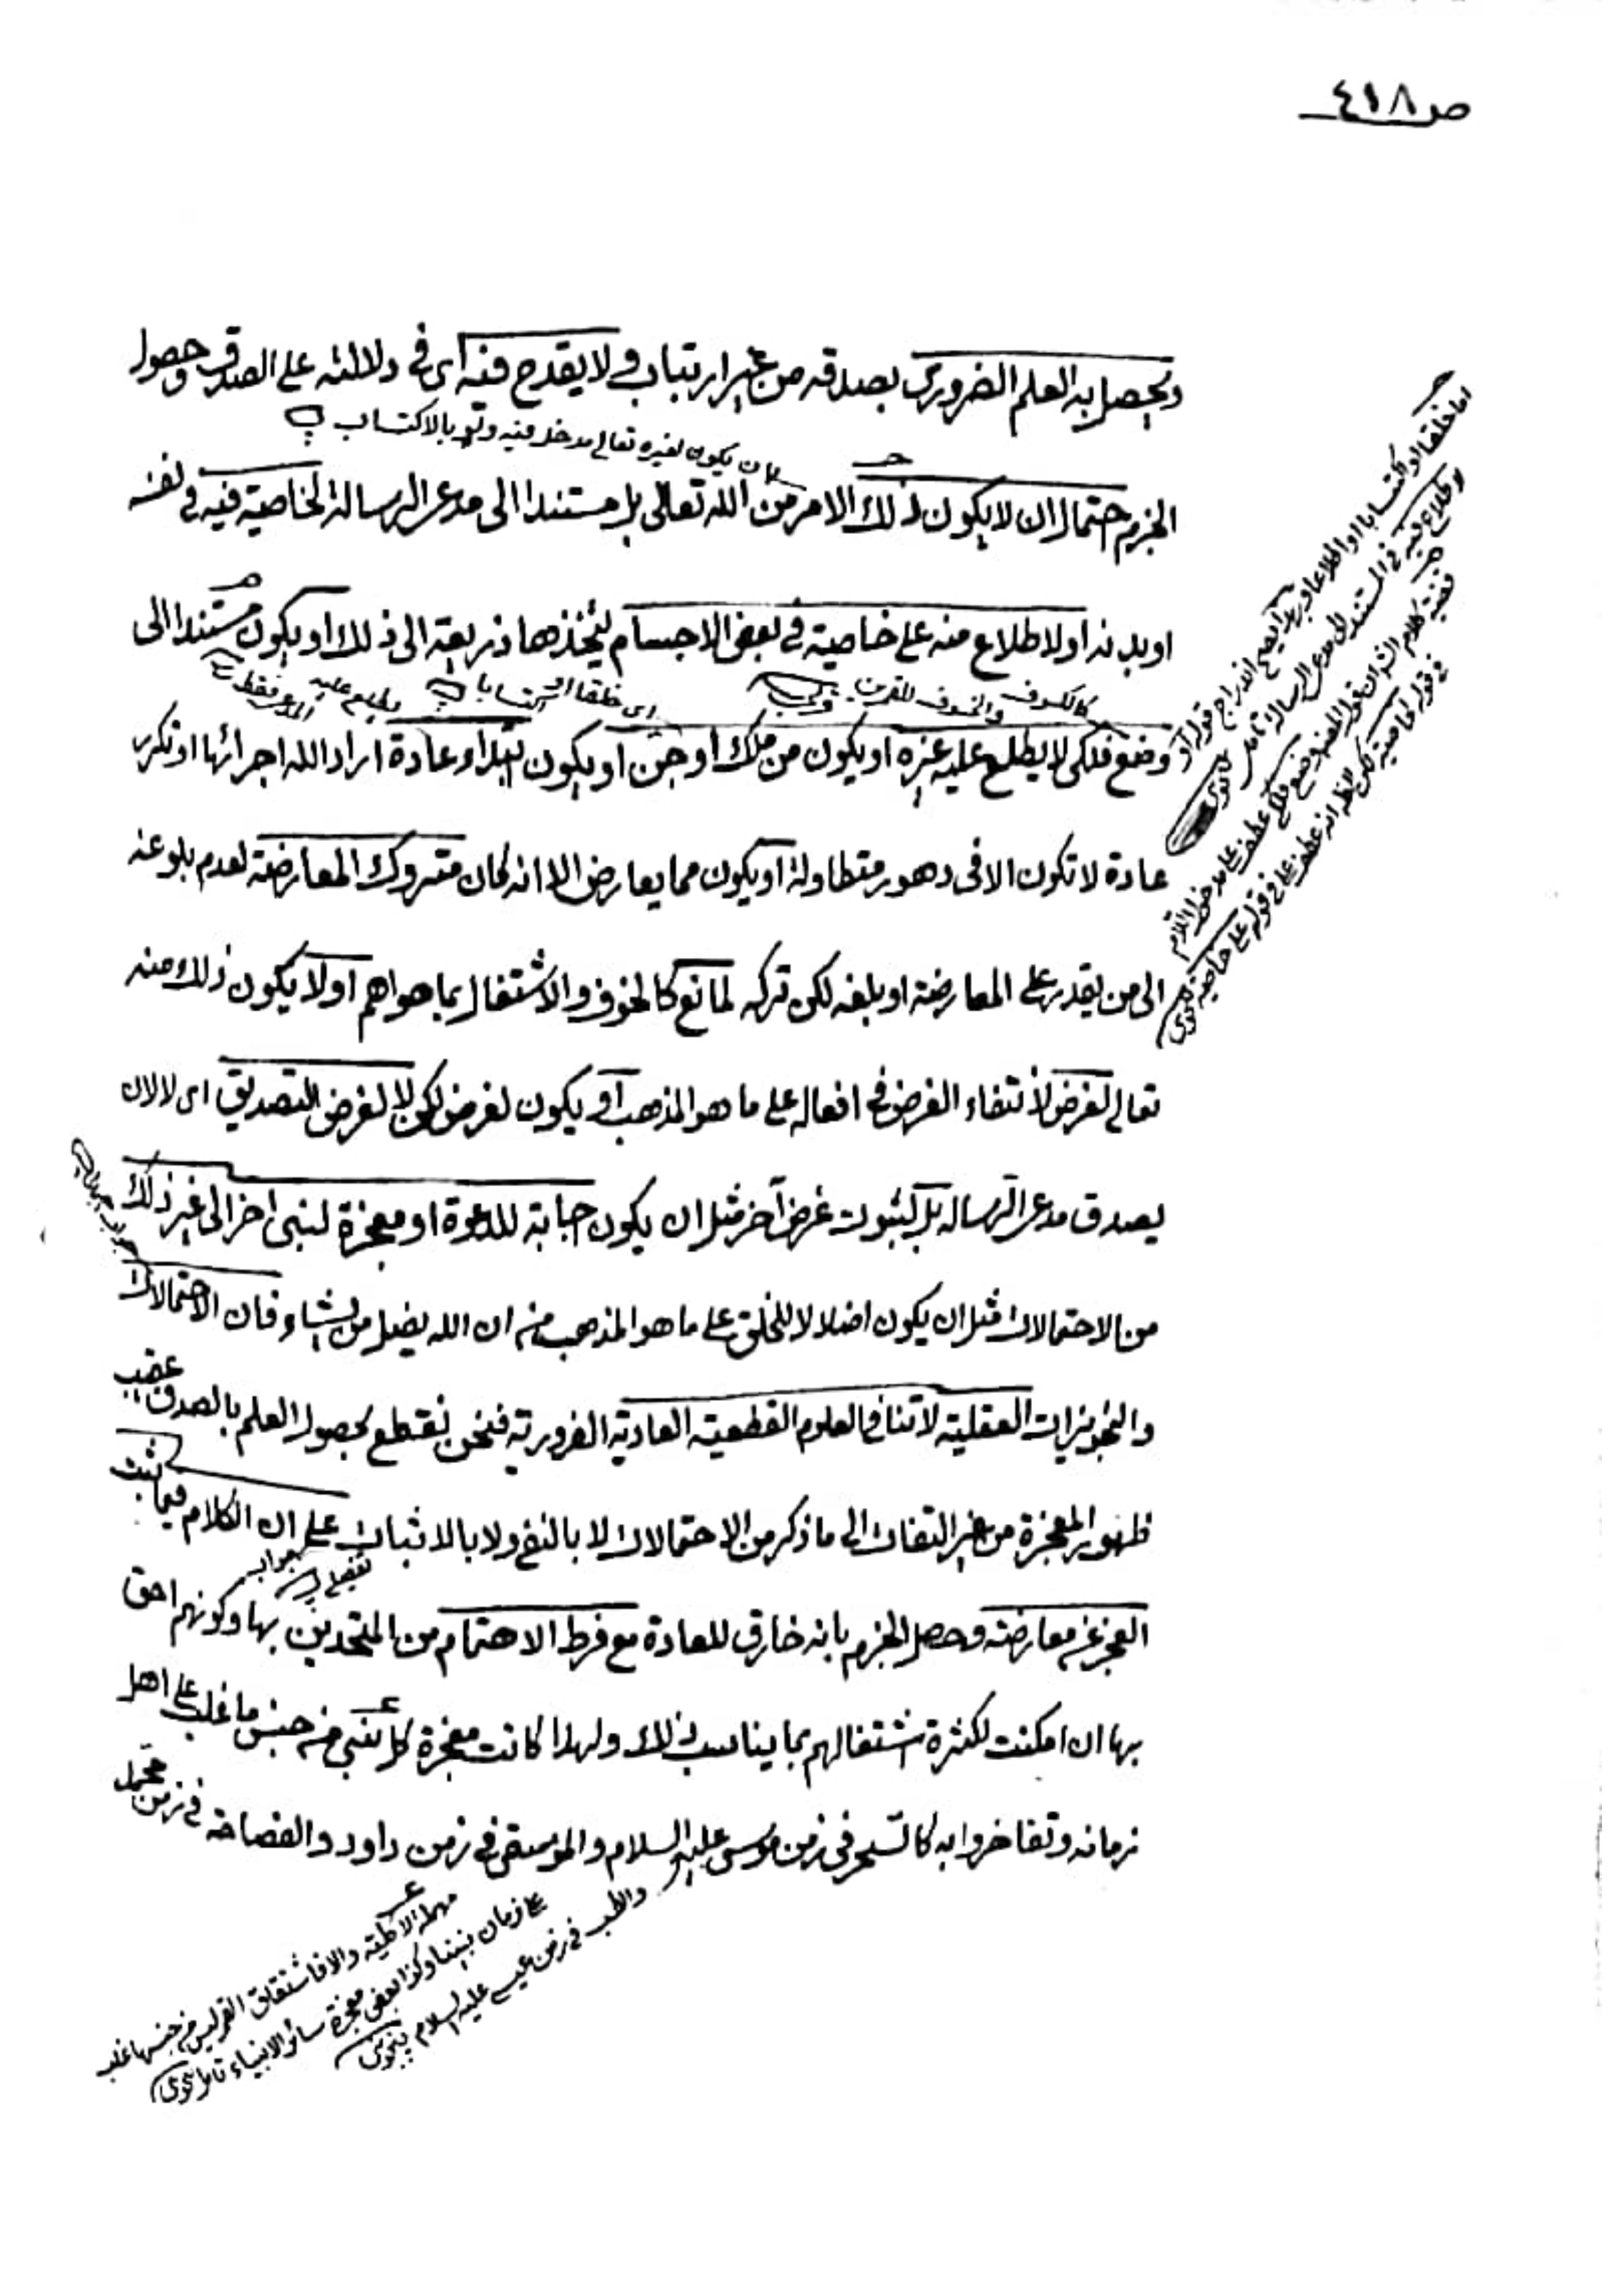 صـ ٤١٨
ويحصل به العلم الضروري بصدقه من غير ارتياب ولا يقدح فيه اى فى دلالته على الصدق وحصول
بان يكون لغيره تعالى مدخل فيه ولو بالاكتساب
الجزم احتمال ان لا يكون ذلك الامر من الله تعالى بل مستندا الى مدعى الرسالة لخاصية فيه فى نفسه
او بدنه او لاطلاع منه على خاصية فى بعض الاجسام ليتخذها ذريعة الى ذلك او يكون مستندا الى
كالكسوف والخسوف للقمرين
اى خلقا او اكتسابا
يطلع عليه المدعى فقط
وضع فلكى لا يطلع عليه غيره او يكون من ملك او جن او يكون ابتداء عادة اراد الله اجرائها او تكرر
عادة لا تكون الا فى دهور متطاولة او يكون مما يعارض الا انه كان متروك المعارضة لعدم بلوغه
الى من يقدر على المعارضة او بلغه لكن تركه لمانع كالخوف والاشتغال بما هو اهم او لا يكون ذلك منه
تعالى لغرض لانتفاء الغرض فى افعاله على ما هو المذهب او يكون لغرض لكن لا لغرض التصديق اى لا لان
يصدق مدعى الرسالة بل لثبوت غرض آخر مثل ان يكون اجابة للدعوة او معجزة لنبى اخر الى غير ذلك
من الاحتمالات مثل ان يكون اضلالا للخلق على ما هو المذهب من ان الله يضل من يشاء فان الاحتمالات
والتجويزات العقلية لا تنافى العلوم القطعية العادية الضرورية فنحن نقطع بحصول العلم بالصدق عقيب
ظهور المعجزة من غير التفات الى ما ذكر من الاحتمالات لا بالنفى ولا بالاثبات على ان الكلام فيما ثبت
جواب تفصيلى
العجز عن معارضته وحصل الجزم بانه خارق للعادة مع فرط الاهتمام من المتحدين بها وكونهم احق
بها ان امكنت لكثرة اشتغالهم بما يناسب ذلك ولهذا كانت معجزة كل نبى من جنس ما غلب على اهل
زمانه وتفاخروا به كالسحر فى زمن موسى عليه السلام والموسيقى فى زمن داود والفصاحة فى زمن محمد
والطب فى زمن عيسى عليه السلام
مهملة لا كلية والا فانشقاق القمر ليس من جنس ما غلب
على زمان نبينا وكذا بعض معجزة سائر الانبياء